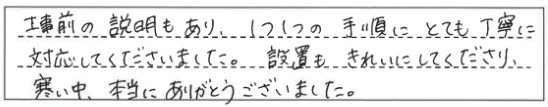 工事前の説明もあり、1つ1つの手順にとても丁寧に
対応してくださいました。設置もきれいにしてくださり、
寒い中、本当にありがとうございました。